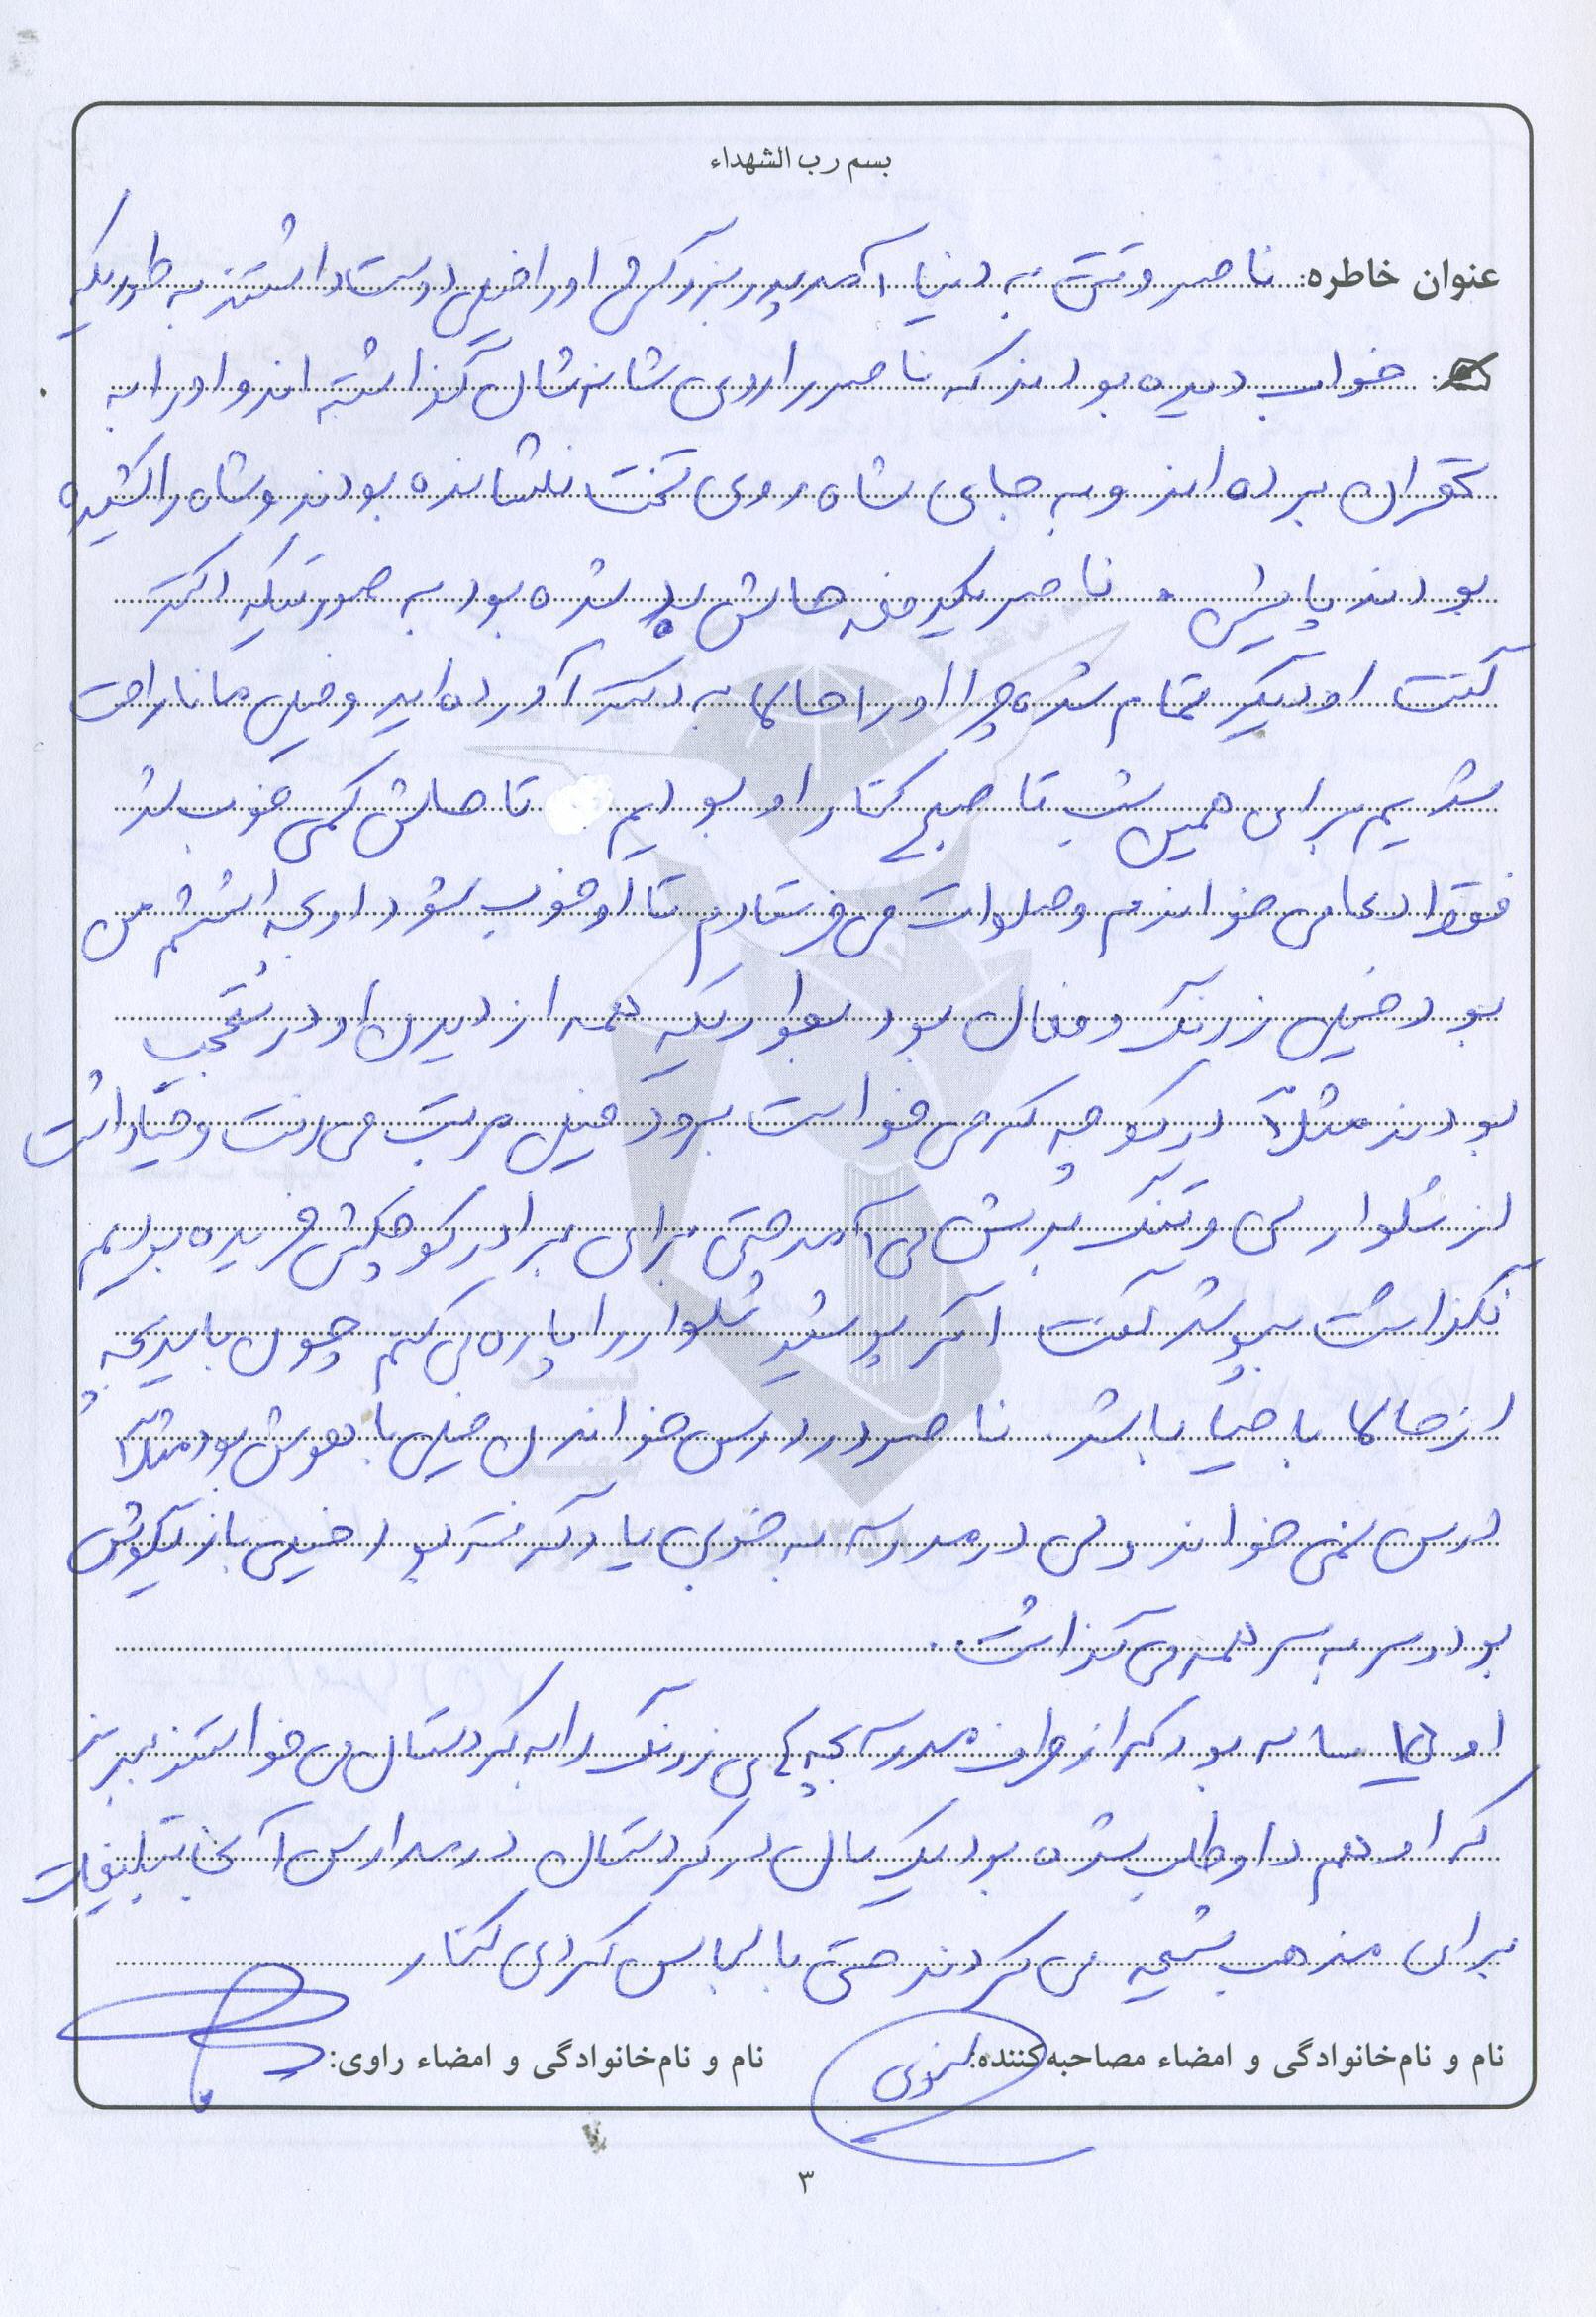 بسم رب الشهداء
عنوان خاطره: ناصر وقتی به دنیا آمد پدربزرگش او را خیلی دوست داشتند به طوریکه
خواب دیده بودند که ناصر را روی شانه‌شان گذاشته اند و او را به
تهران برده اند و به جای شاه روی تخت نشانده بودند و شاه را کشیده
بودند پایین. ناصر یکدفعه حالش بد شده بود به صورتیکه دکتر
گفت او دیگر تمام شده چرا او را حالا به دکتر آورده اید و خیلی ما ناراحت
شدیم برای همین شب تا صبح کنار او بودیم تا حالش کمی خوب شد
فقط دعا می خواندم و صلوات می فرستادم تا او خوب شود او بچه ششم من
بود خیلی زرنگ و فعال بود بطوریکه همه از دیدن او در تعجب
بودند مثلاً در کوچه که می خواست برود خیلی مرتب می رفت و حیا داشت
از شلوار لی و تنگ بدش می آمد حتی برای برادر کوچکش خریده بودیم
نگذاشت بپوشد گفت اگر پوشید شلوار را پاره می کنم چون باید بچه
از حالا با حیا باشد. ناصر در درس خواندن خیلی با هوش بود مثلاً
درس نمی خواند ولی در مدرسه به خوبی یاد گرفته بود خیلی بازیگوش
بود و سر به سر همه می گذاشت.
او ساله بود که از طرف مدرسه بچه های زرنگ را به کردستان می خواستند ببرند
که او هم داوطلب شده بود یک سال در کردستان در مدارس آنجا تبلیغات
برای مذهب شیعه می کردند حتی با لباس کردی کنار
نام و نام‌خانوادگی و امضاء مصاحبه‌کننده: نام و نام‌خانوادگی و امضاء راوی:
۳